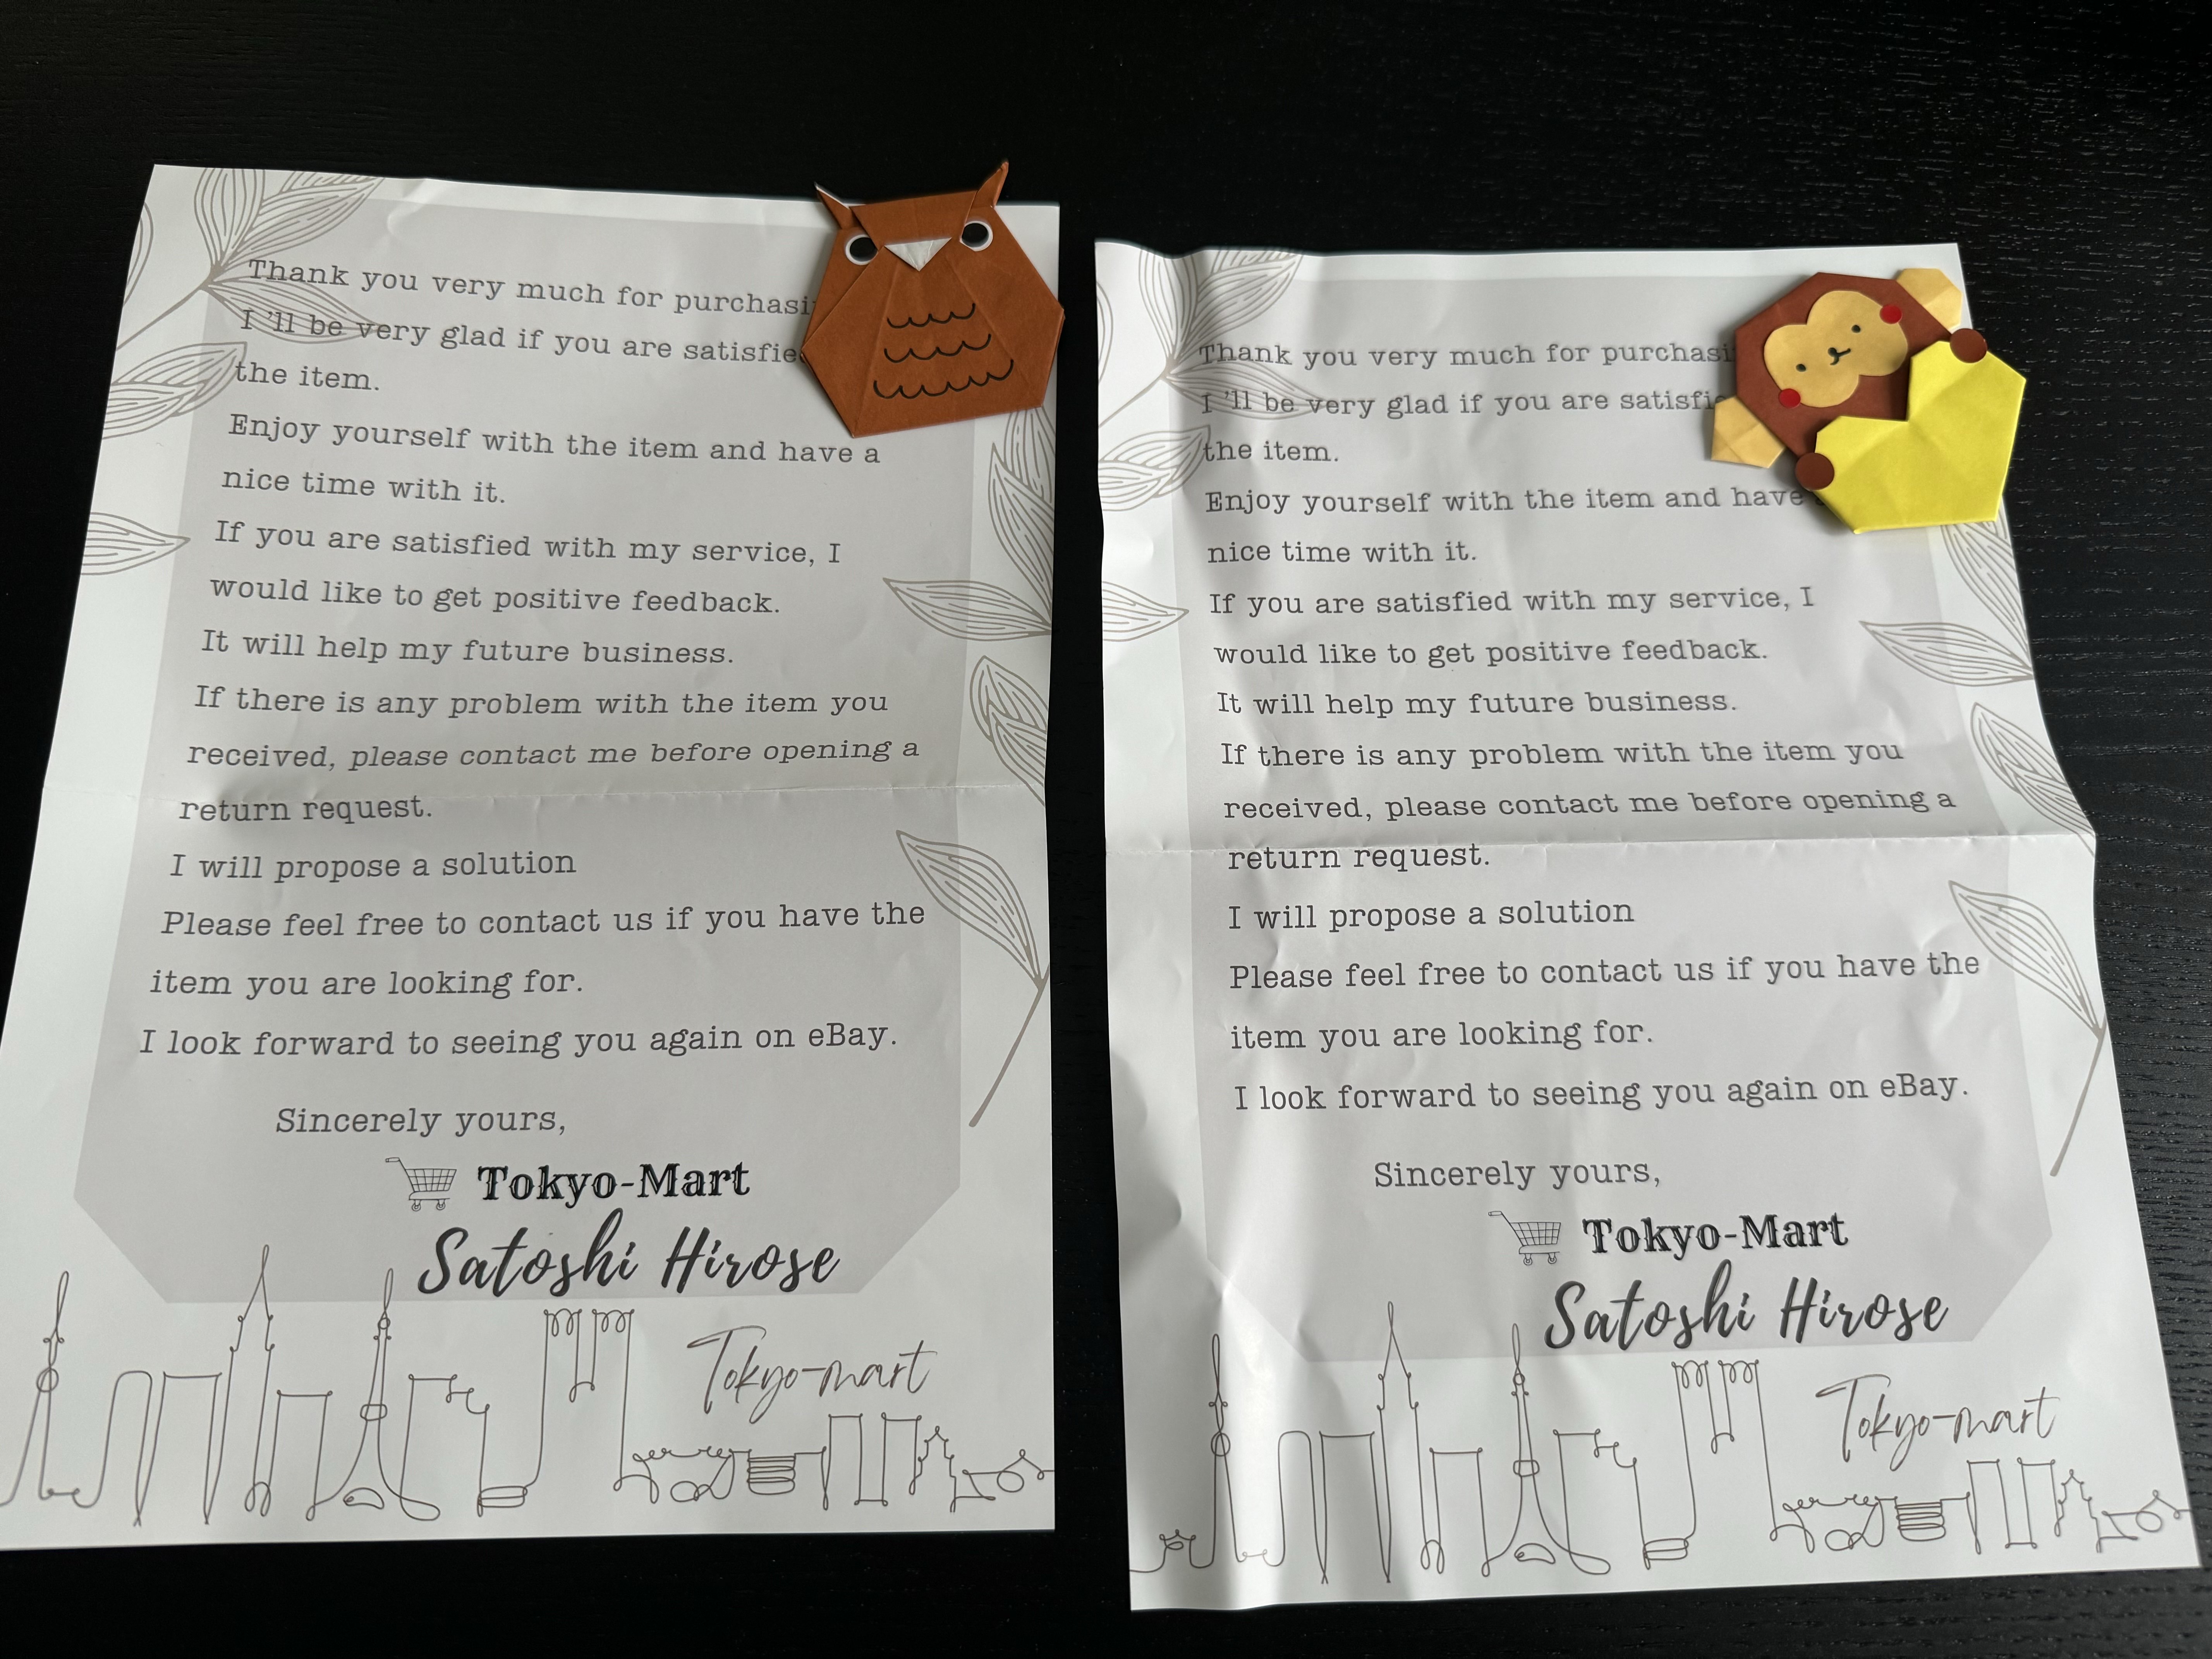 Thank you very much for
I 'll be very glad if you are
the item.
Enjoy yourself with the item and have a
nice time with it.
If you are satisfied with my service, I
would like to get positive feedback.
It will help my future business.
If there is any problem with the item you
received, please contact me before opening a
return request.
I will propose a solution
Please feel free to contact us if you have the
item you are looking for.
I look forward to seeing you again on eBay.
Sincerely yours,
Tokyo-Mart
Satoshi Hirose
Tokyo-mart
Thank you very much for
I 'll be very glad if you are
the item.
Enjoy yourself with the item and have
nice time with it.
If you are satisfied with my service, I
would like to get positive feedback.
It will help my future business.
If there is any problem with the item you
received, please contact me before opening a
return request.
I will propose a solution
Please feel free to contact us if you have the
item you are looking for.
I look forward to seeing you again on eBay.
Sincerely yours,
Tokyo-Mart
Satoshi Hirose
Tokyo-mart